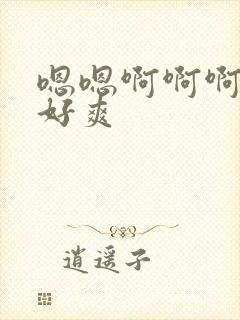 嗯嗯啊啊啊
好爽
逍遥子